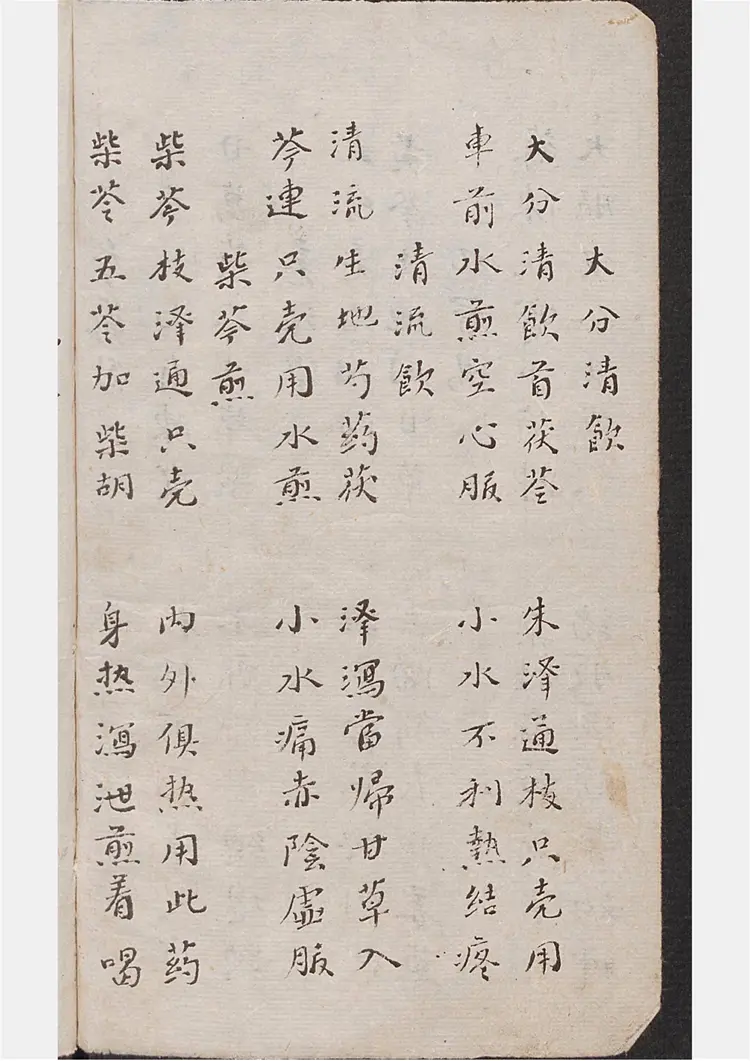 大分清飲
大分清飲首茯苓　朱泽通枝只壳用
車前水煎空心服　小水不利熱结疼
清流飲
清流生地芍药茯　泽瀉當帰甘草入
芩連只壳用水煎　小水痛赤陰虚服
柴芩煎
柴芩枝泽通只壳　内外俱热用此药
柴苓五苓加柴胡　身热瀉泄煎着喝